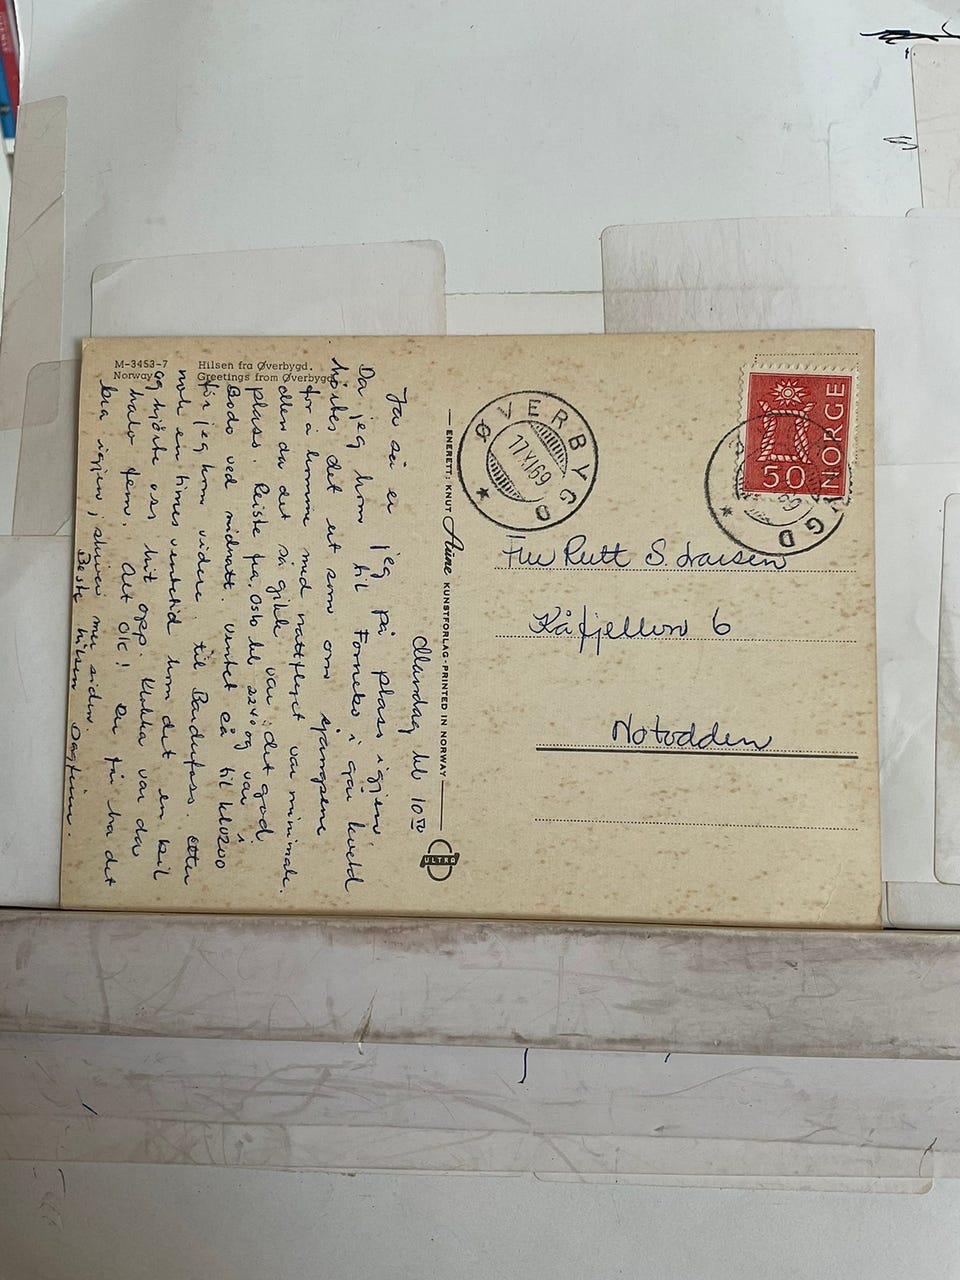 M-3453-7
Norway
Hilsen fra Øverbygd.
Greetings from Øverbygd
Mandag kl 10
Ja så er jeg på plass igjen
Da jeg kom til Fornebo i går kveld
hørtes det ut som om sjansene
for å komme med nattflyet var minimale.
men da det så gikk var det god
plass. Reiste fra Oslo kl 2240 og var i
Bodø ved midnatt. Ventet så til kl 0200
før jeg kom videre til Bardufoss. Etter
nok en times ventetid kom det en bil
og kjørte oss hit opp. Klokka var da
halv fem. Alt OK! Du får ha det
bra igjen, skriver mer siden.
Beste hilsen Dagfinn.
ENERETT: KNUT Aune KUNSTFORLAG - PRINTED IN NORWAY
ULTRA
ØVERBYGD
17.XI.69
NORGE
50
GD
69
Fru Rutt S. Larsen
Kåfjellvn 6
Notodden